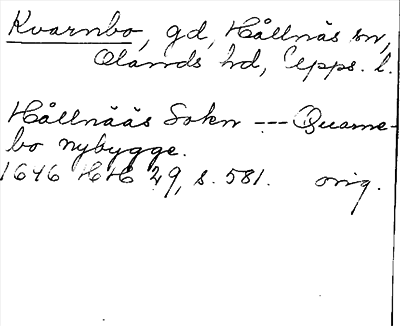 Kvarnbo, gd, Hållnäs sn,
Olands hd, Upps. l.
Hållnääs Sokn --- Quarne-
bo nybygge.
1646 HH 29, s. 581. orig.